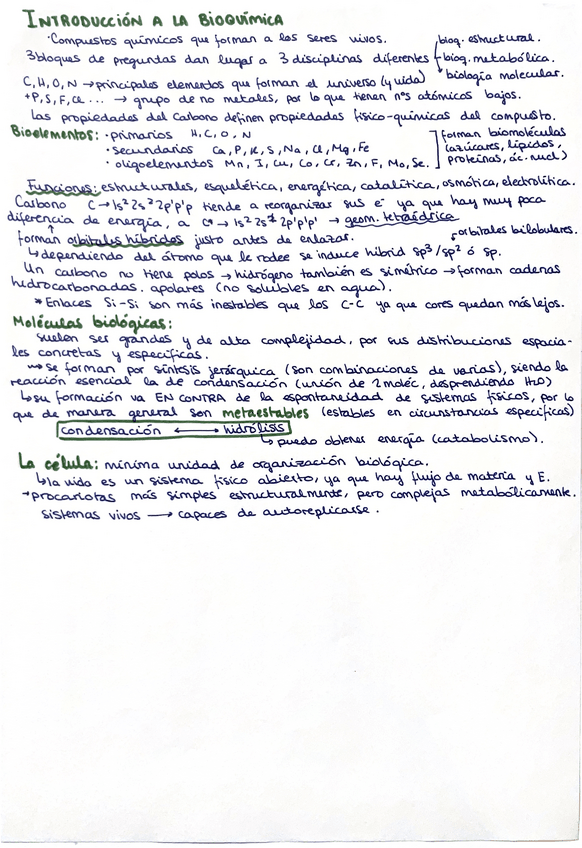 INTRODUCCIÓN A LA BIOQUÍMICA
·Compuestos químicos que forman a los seres vivos.
3 bloques de preguntas dan lugar a 3 disciplinas diferentes
bioq. estructural.
bioq. metabólica.
biología molecular.
C, H, O, N → principales elementos que forman el universo (y vida)
+P, S, F, Cl ... → grupo de no metales, por lo que tienen nºs atómicos bajos.
Las propiedades del Carbono definen propiedades físico-químicas del compuesto.
Bioelementos: · primarios H, C, O, N
· secundarios Ca, P, K, S, Na, Cl, Mg, Fe
· oligoelementos Mn, I, Cu, Co, Cr, Zn, F, Mo, Se.
forman biomoléculas
(azúcares, lípidos,
proteínas, ác. nucl)
Funciones: estructurales, esquelética, energética, catalítica, osmótica, electrolítica.
Carbono C → 1s² 2s² 2p¹p¹p tiende a reorganizar sus e⁻ ya que hay muy poca
diferencia de energía, a C* → 1s² 2s¹ 2p¹p¹p¹ → geom. tetraédrica
forman orbitales híbridos justo antes de enlazar.
orbitales bilobulares.
↳ dependiendo del átomo que le rodee se induce hibrid sp³/sp² ó sp.
Un carbono no tiene polos → hidrógeno también es simétrico → forman cadenas
hidrocarbonadas. apolares (no solubles en agua).
* Enlaces Si-Si son más inestables que los C-C ya que cores quedan más lejos.
Moléculas biológicas:
Suelen ser grandes y de alta complejidad, por sus distribuciones espacia-
les concretas y específicas.
→ se forman por síntesis jerárquica (son combinaciones de varias), siendo la
reacción esencial la de condensación (unión de 2 moléc, desprendiendo H2O)
↳ su formación va EN CONTRA de la espontaneidad de sistemas físicos, por lo
que de manera general son metaestables (estables en circunstancias específicas)
condensación ⟷ hidrólisis
↳ puedo obtener energía (catabolismo).
La célula: mínima unidad de organización biológica.
↳ la vida es un sistema físico abierto, ya que hay flujo de materia y E.
→ procariotas más simples estructuralmente, pero complejas metabólicamente.
sistemas vivos → capaces de autoreplicarse.